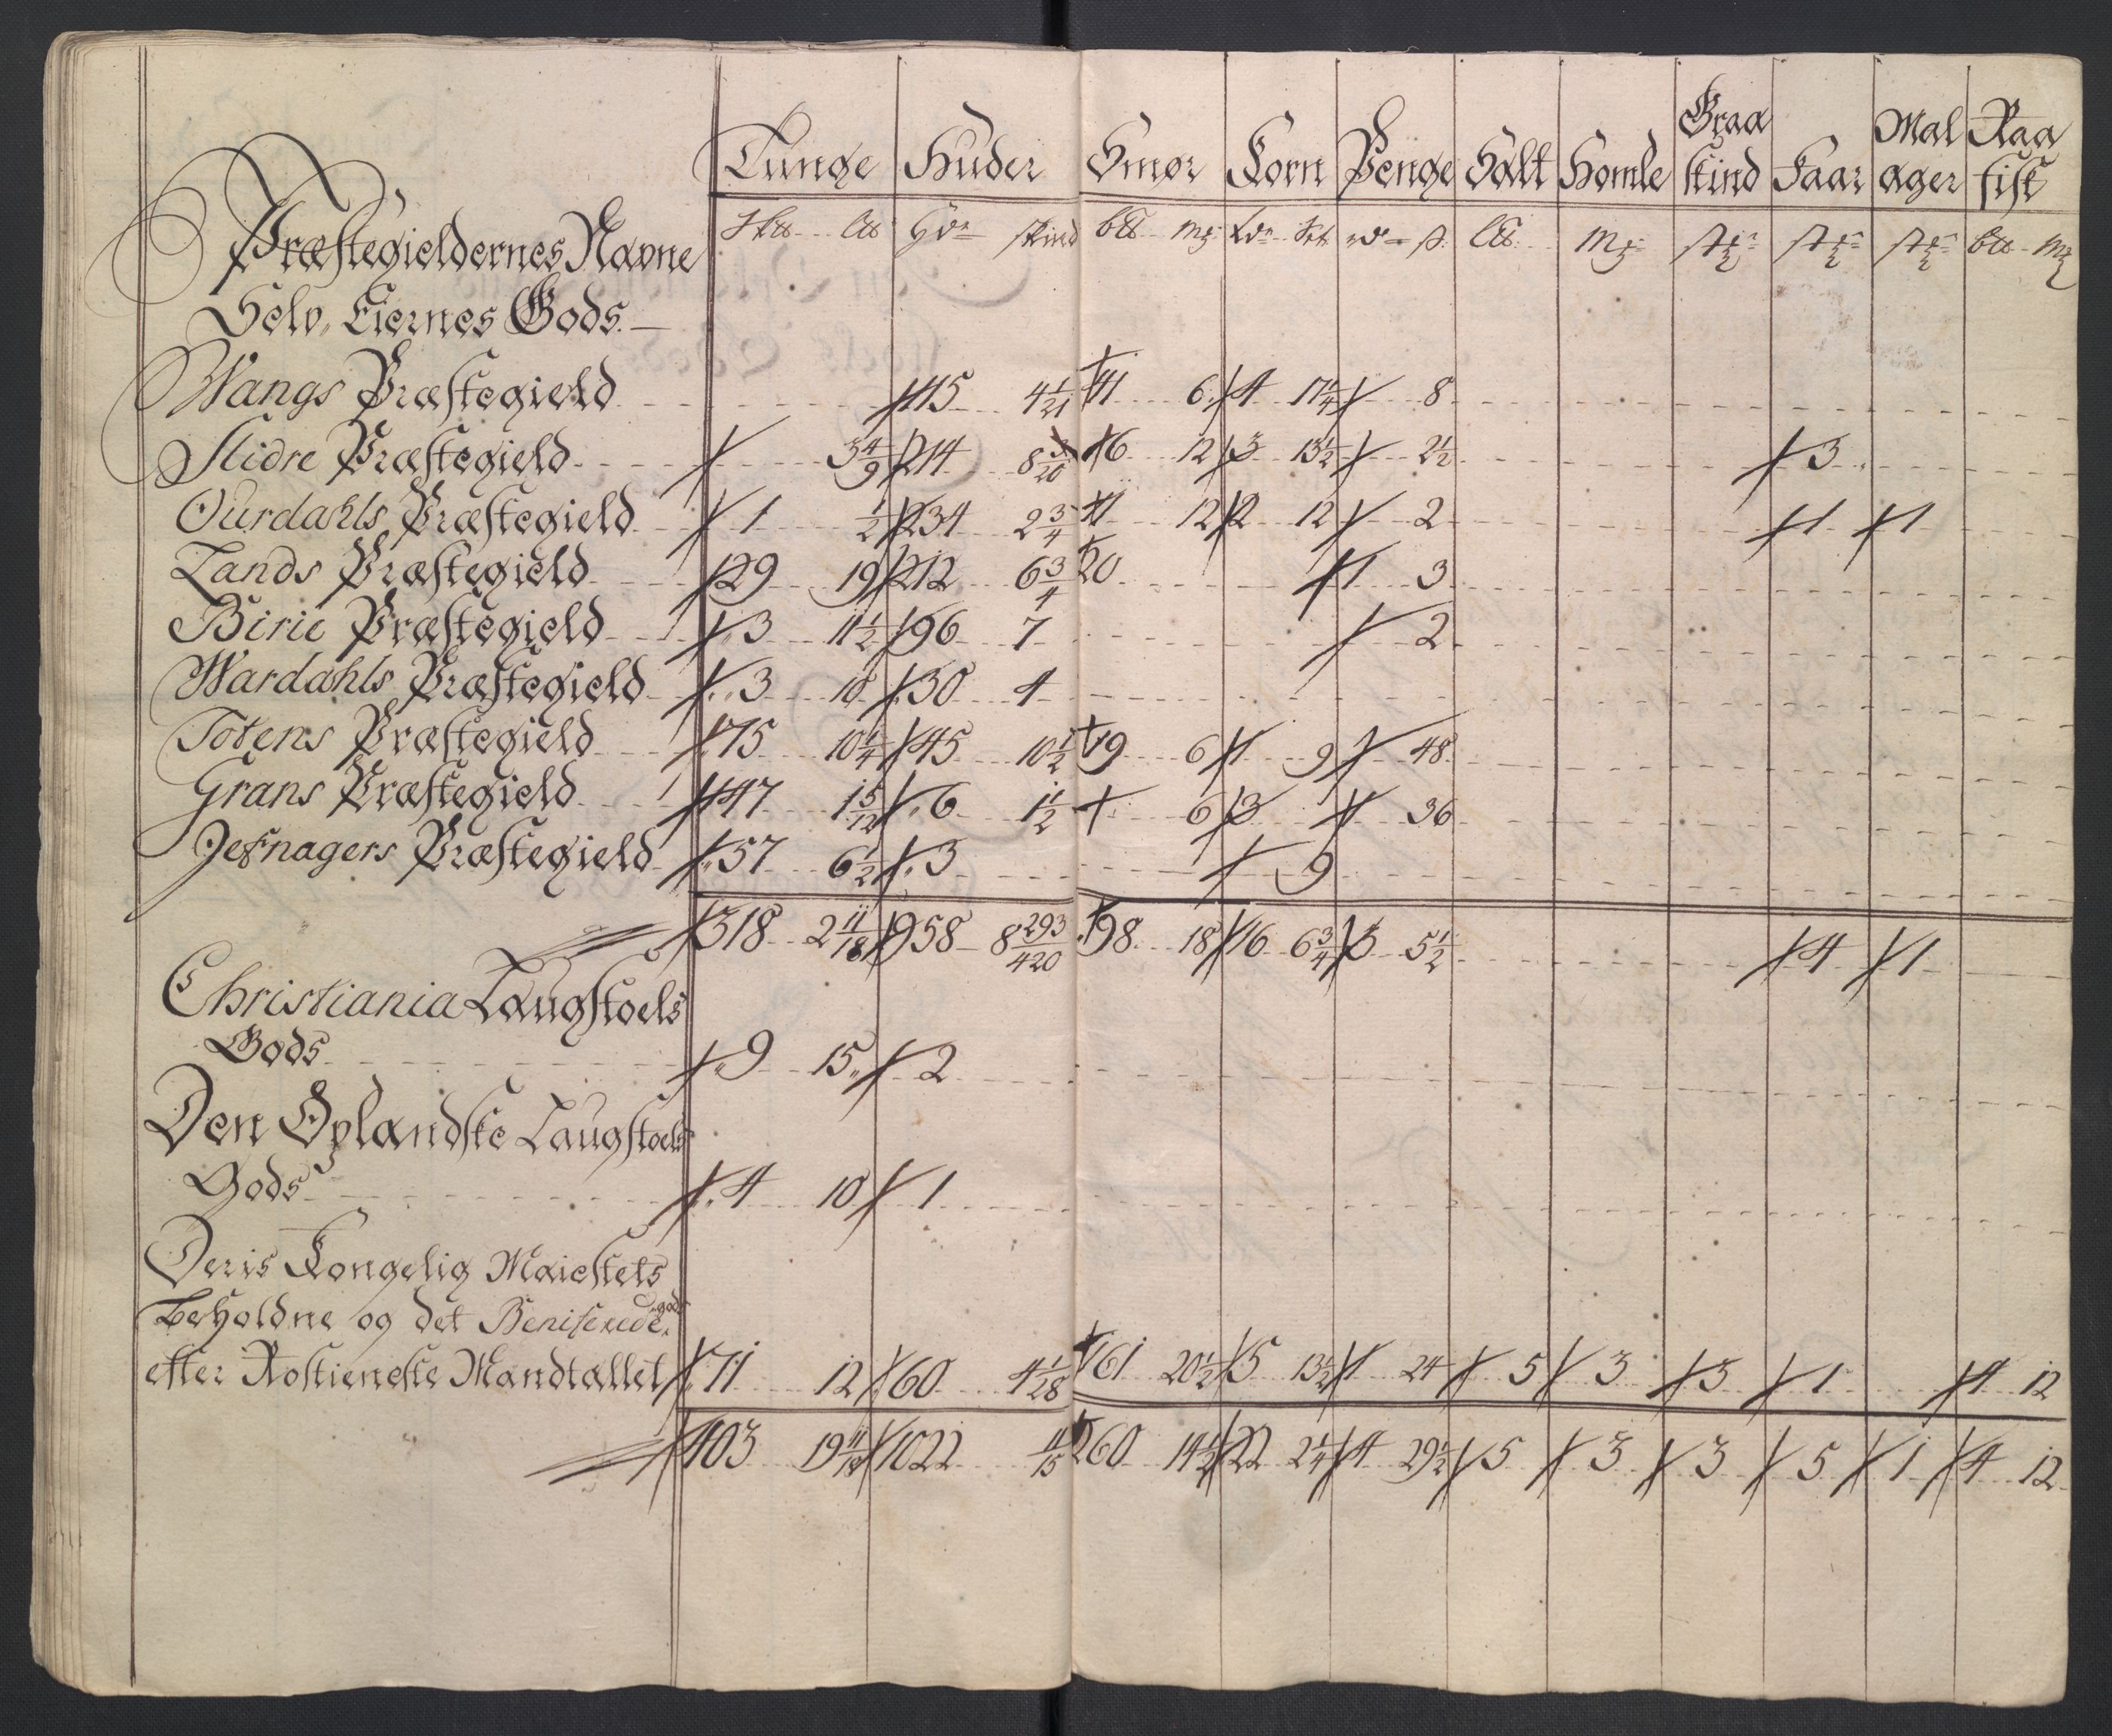 Tunge Huder Smør Korn Penge Salt Homle Graa skind Faar Mal ager Raa fisk
Præstegieldernes Navne
Selv Eiernes Gods
Wangs Præstegield 115 4 1/21 41 6 4 17 1/4 8
Slidre Præstegield 3 4/9 214 8 3/20 16 12 3 13 1/2 2 1/2 3
Ourdahls Præstegield 1 1/2 234 2 3/4 1 12 2 12 2 1 1
Lands Præstegield 29 19 212 6 3/4 20 1 3
Birie Præstegield 3 11 1/2 96 7 2
Wardahls Præstegield 3 10 30 4
Totens Præstegield 75 10 1/4 45 10 1/2 19 6 1 9 48
Grans Præstegield 147 1 5/12 6 1 1/2 6 3 1 36
Jefnagers Præstegield 57 6 1/2 3 9
318 2 11/18 958 8 293/420 98 18 16 6 3/4 3 5 1/2 4 1
Christiania Laugstoels
Gods 9 15 2
Den Oplandske Laugstoels
Gods 4 10 1
Deris Kongelig Maiestets
beholdne og det Benificerede gods
efter Rostieneste Mandtallet 71 12 60 4 1/28 161 20 1/2 5 13 1/2 1 24 5 3 3 1 4 12
403 19 11/18 1022 11/15 260 14 1/2 22 2 1/4 4 29 1/2 5 3 3 5 1 4 12